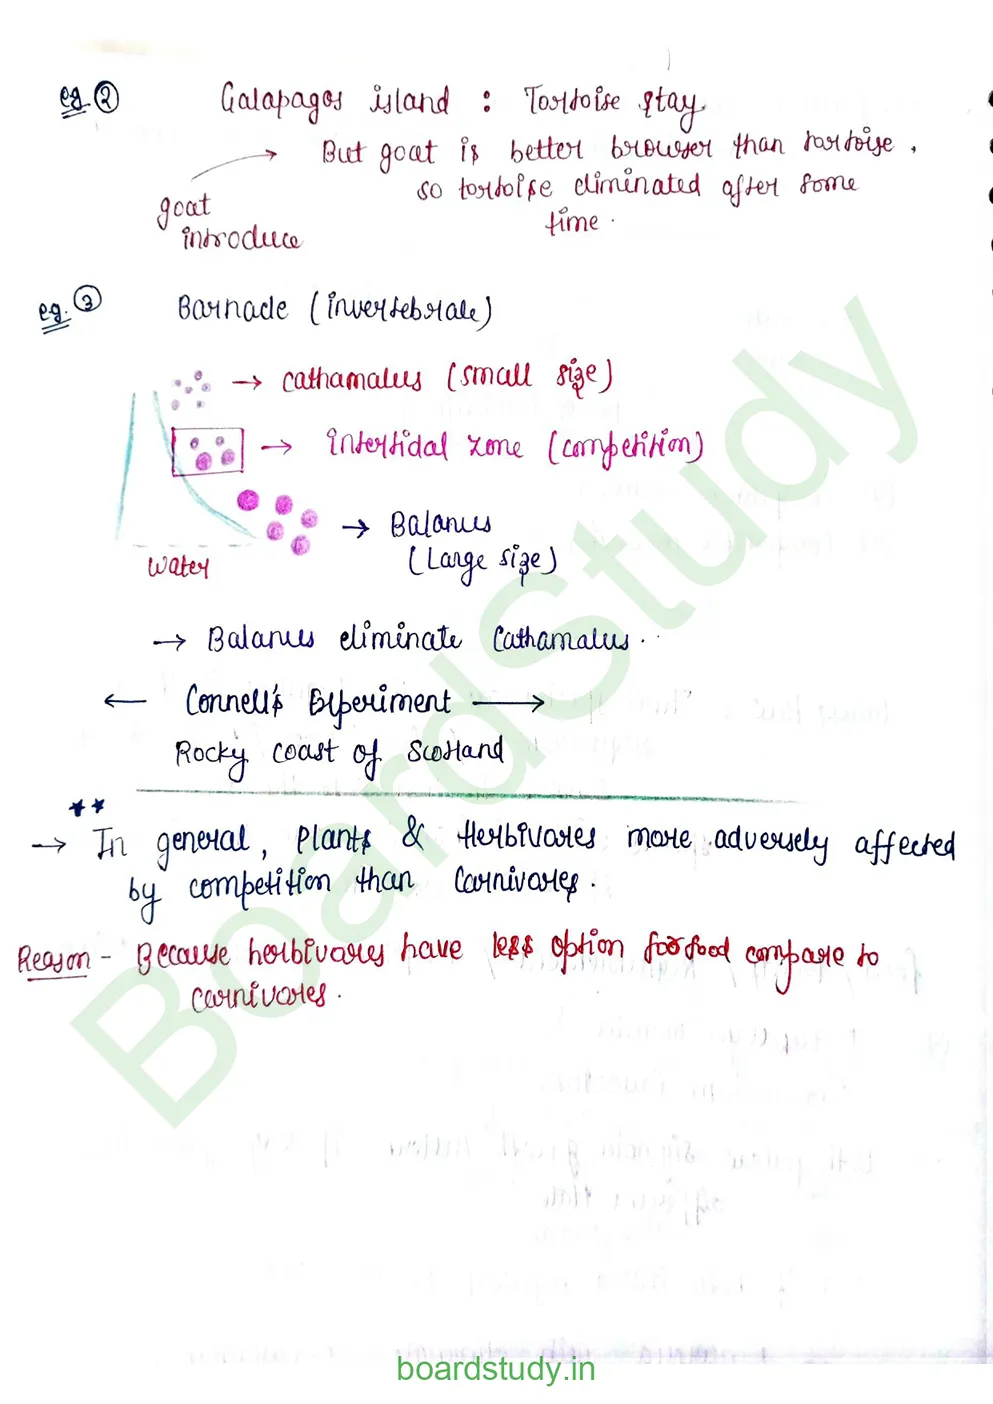 eg. ②
Galapagos island : Tortoise stay
But goat is better browser than tortoise.
so tortoise eliminated after some
time.
goat
introduce
eg. ③
Barnacle (invertebrate)
→ Cathamalus (small size)
→ intertidal zone (competition)
→ Balanus
(Large size)
water
→ Balanus eliminate Cathamalus.
← Connell's Experiment →
Rocky coast of Scotland
★★
→ In general, Plants & Herbivores more adversely affected
by competition than Carnivores.
Reason - Because herbivores have less option for food compare to
carnivores.
BoardStudy
boardstudy.in